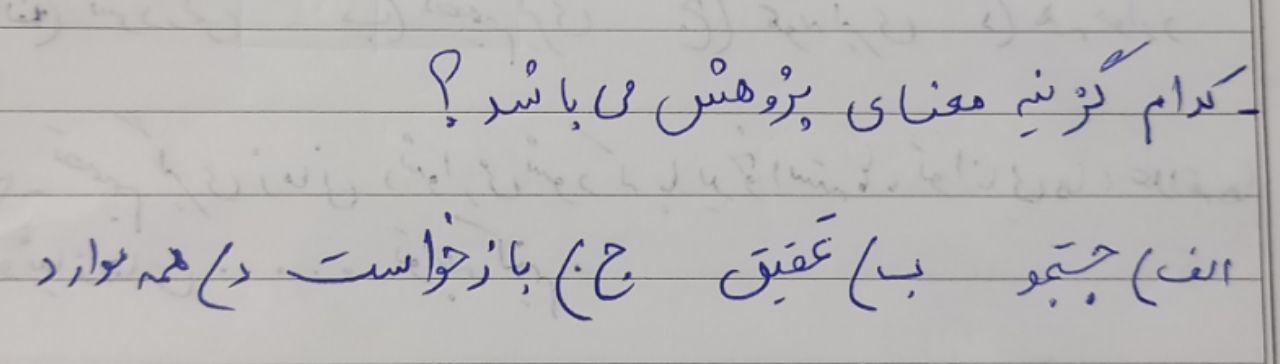 - کدام گزینه معنای پژوهش می باشد؟
الف) جستجو ب) تحقیق ج) بازخواست د) همه موارد